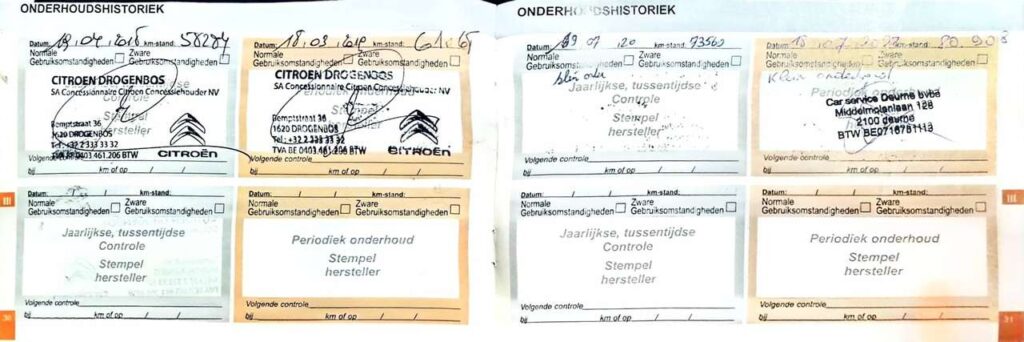 ONDERHOUDSHISTORIEK
Datum: 19.04.2018 km-stand: 58284
Normale Gebruiksomstandigheden Zware
CITROEN DROGENBOS
SA Concessionnaire Citroen Concessiehouder NV
Controle
Stempel
hersteller
1620 DROGENBOS
Tel.: +32 2 333 33 32
0403.461.206 BTW
CITROËN
Volgende controle
bij km of op / /
Datum: 18.03.2019 km-stand:
Normale Gebruiksomstandigheden Zware
CITROEN DROGENBOS
SA Concessionnaire Citroen Concessiehouder NV
Periodiek onderhoud
Stempel
hersteller
1620 DROGENBOS
Tel.: +32 2 333 33 32
TVA BE 0403.461.206 BTW
CITROËN
Volgende controle
bij km of op / /
Datum: / / km-stand:
Normale Zware
Gebruiksomstandigheden Gebruiksomstandigheden
Jaarlijkse, tussentijdse
Controle
Stempel
hersteller
Volgende controle
bij km of op / /
Datum: / / km-stand:
Normale Zware
Gebruiksomstandigheden Gebruiksomstandigheden
Periodiek onderhoud
Stempel
hersteller
Volgende controle
bij km of op / /
30
ONDERHOUDSHISTORIEK
Datum: 07 20 km-stand: 73560
Normale Zware
Jaarlijkse, tussentijdse
Controle
Stempel
hersteller
Volgende controle
bij km of op / /
Datum: km-stand: 80.908
Normale Zware
Klein onderhoud
Periodiek onderhoud
Car service Deurne bvba
Middelmolenlaan 128
2100 deurne
BTW BE0716781113
Volgende controle
bij km of op / /
Datum: / / km-stand:
Normale Zware
Gebruiksomstandigheden Gebruiksomstandigheden
Jaarlijkse, tussentijdse
Controle
Stempel
hersteller
Volgende controle
bij km of op / /
Datum: / / km-stand:
Normale Zware
Gebruiksomstandigheden Gebruiksomstandigheden
Periodiek onderhoud
Stempel
hersteller
Volgende controle
bij km of op / /
III
31